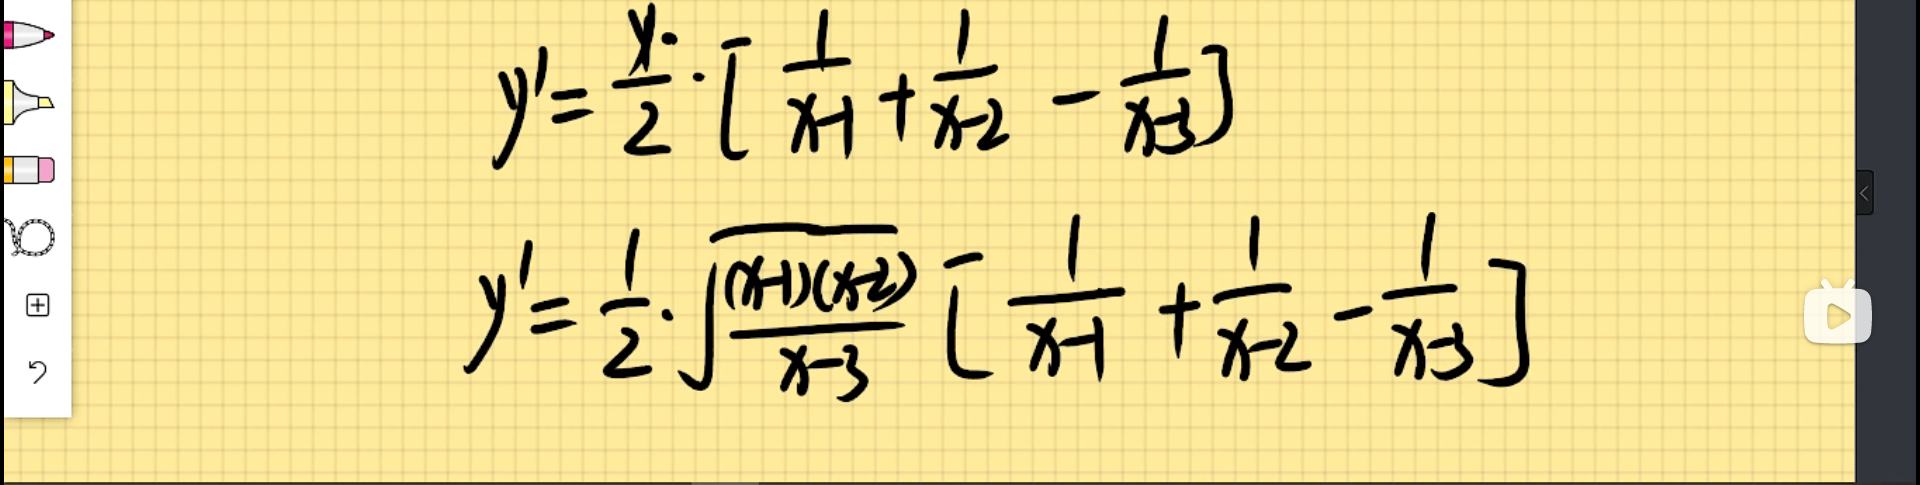 y' = \frac{y}{2} \cdot [\frac{1}{x-1} + \frac{1}{x-2} - \frac{1}{x-3}]
y' = \frac{1}{2} \cdot \sqrt{\frac{(x-1)(x-2)}{x-3}} [\frac{1}{x-1} + \frac{1}{x-2} - \frac{1}{x-3}]